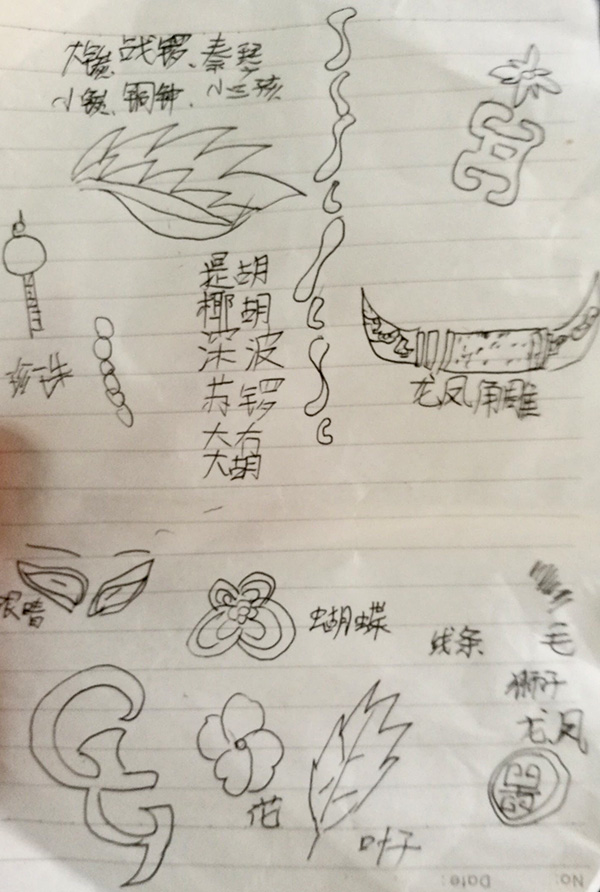 大钹、战锣、秦琴
小钹、铜钟、小三弦
提胡
椰胡
深波
苏锣
大胡
龙凤角雕
眼睛
蝴蝶
线条
毛
狮子
龙凤
花
叶子
No:
Date: